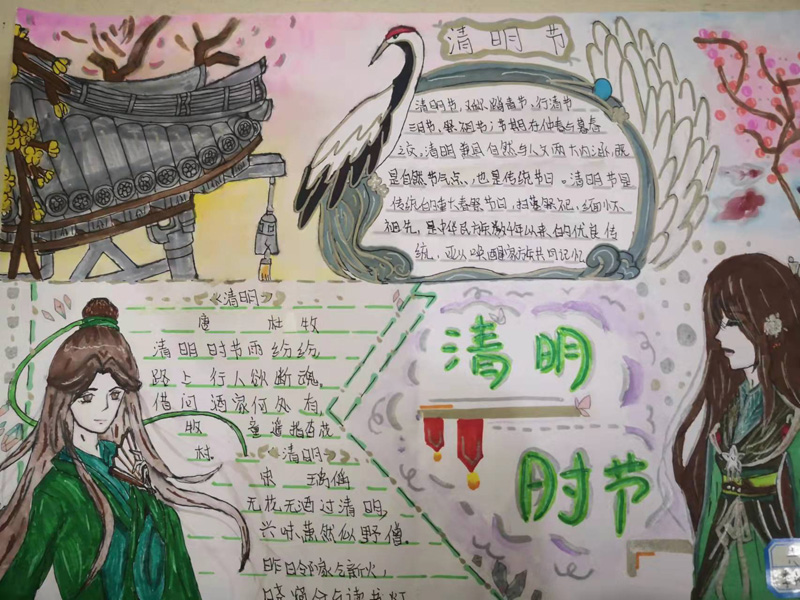 清明节
清明节，又称踏青节、行清节
三月节、祭祖节，节期在仲春与暮春
之交。清明兼具自然与人文两大内涵，既
是自然节气点，也是传统节日。清明节是
传统的重大春祭节日，扫墓祭祀、缅怀
祖先，是中华民族数千年以来的优良传
统，
《清明》
唐 杜牧
清明时节雨纷纷
路上行人欲断魂
借问酒家何处有，
牧童遥指杏花
村
《清明》
宋
无花无酒过清明，
兴味萧然似野僧.
昨日邻家乞新火，
晓窗分与读书灯
清明
时节